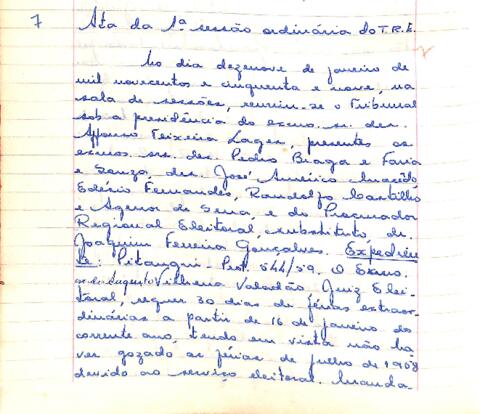 7 Ata da 1ª sessão ordinária do T.R.E.
No dia dezenove de janeiro de
mil novecentos e cinquenta e nove, na
sala de sessões, reuniu-se o Tribunal
sob a presidência do exmo. sr. des.
Affonso Teixeira Lages, presentes os
exmos. srs. des. Pedro Braga e Faria
e Souza, drs. José Américo Macêdo,
Edésio Fernandes, Randolfo
e Agenor de Sena, e do Procurador
Regional Eleitoral, substituto, dr.
Joaquim Ferreira Gonçalves. Expedien
te: Pitangui - Prot. 544/59. O Exmo.
sr. dr. Augusto Vilhena Valadão, Juiz Elei-
toral, requer 30 dias de férias extraor-
dinárias a partir de 16 de janeiro do
corrente ano, tendo em vista não ha-
ver gozado as férias de julho de 1958
devido ao serviço eleitoral. Manda-